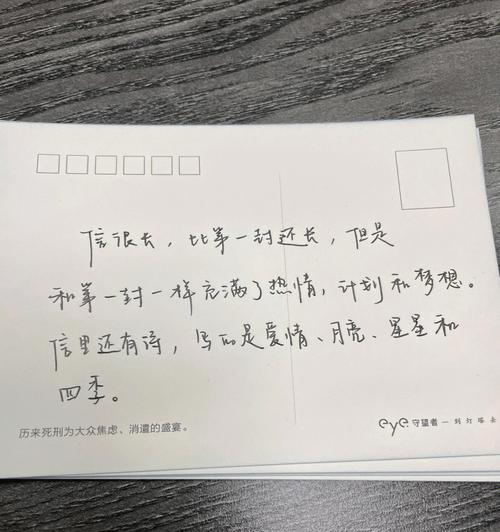 信很长，比第一封还长，但是
和第一封一样充满了热情，计划和梦想。
信里还有诗，写的是爱情、月亮、星星和
四季。
历来死刑为大众焦虑、消遣的盛宴。
eye 守望者 — 到灯塔去